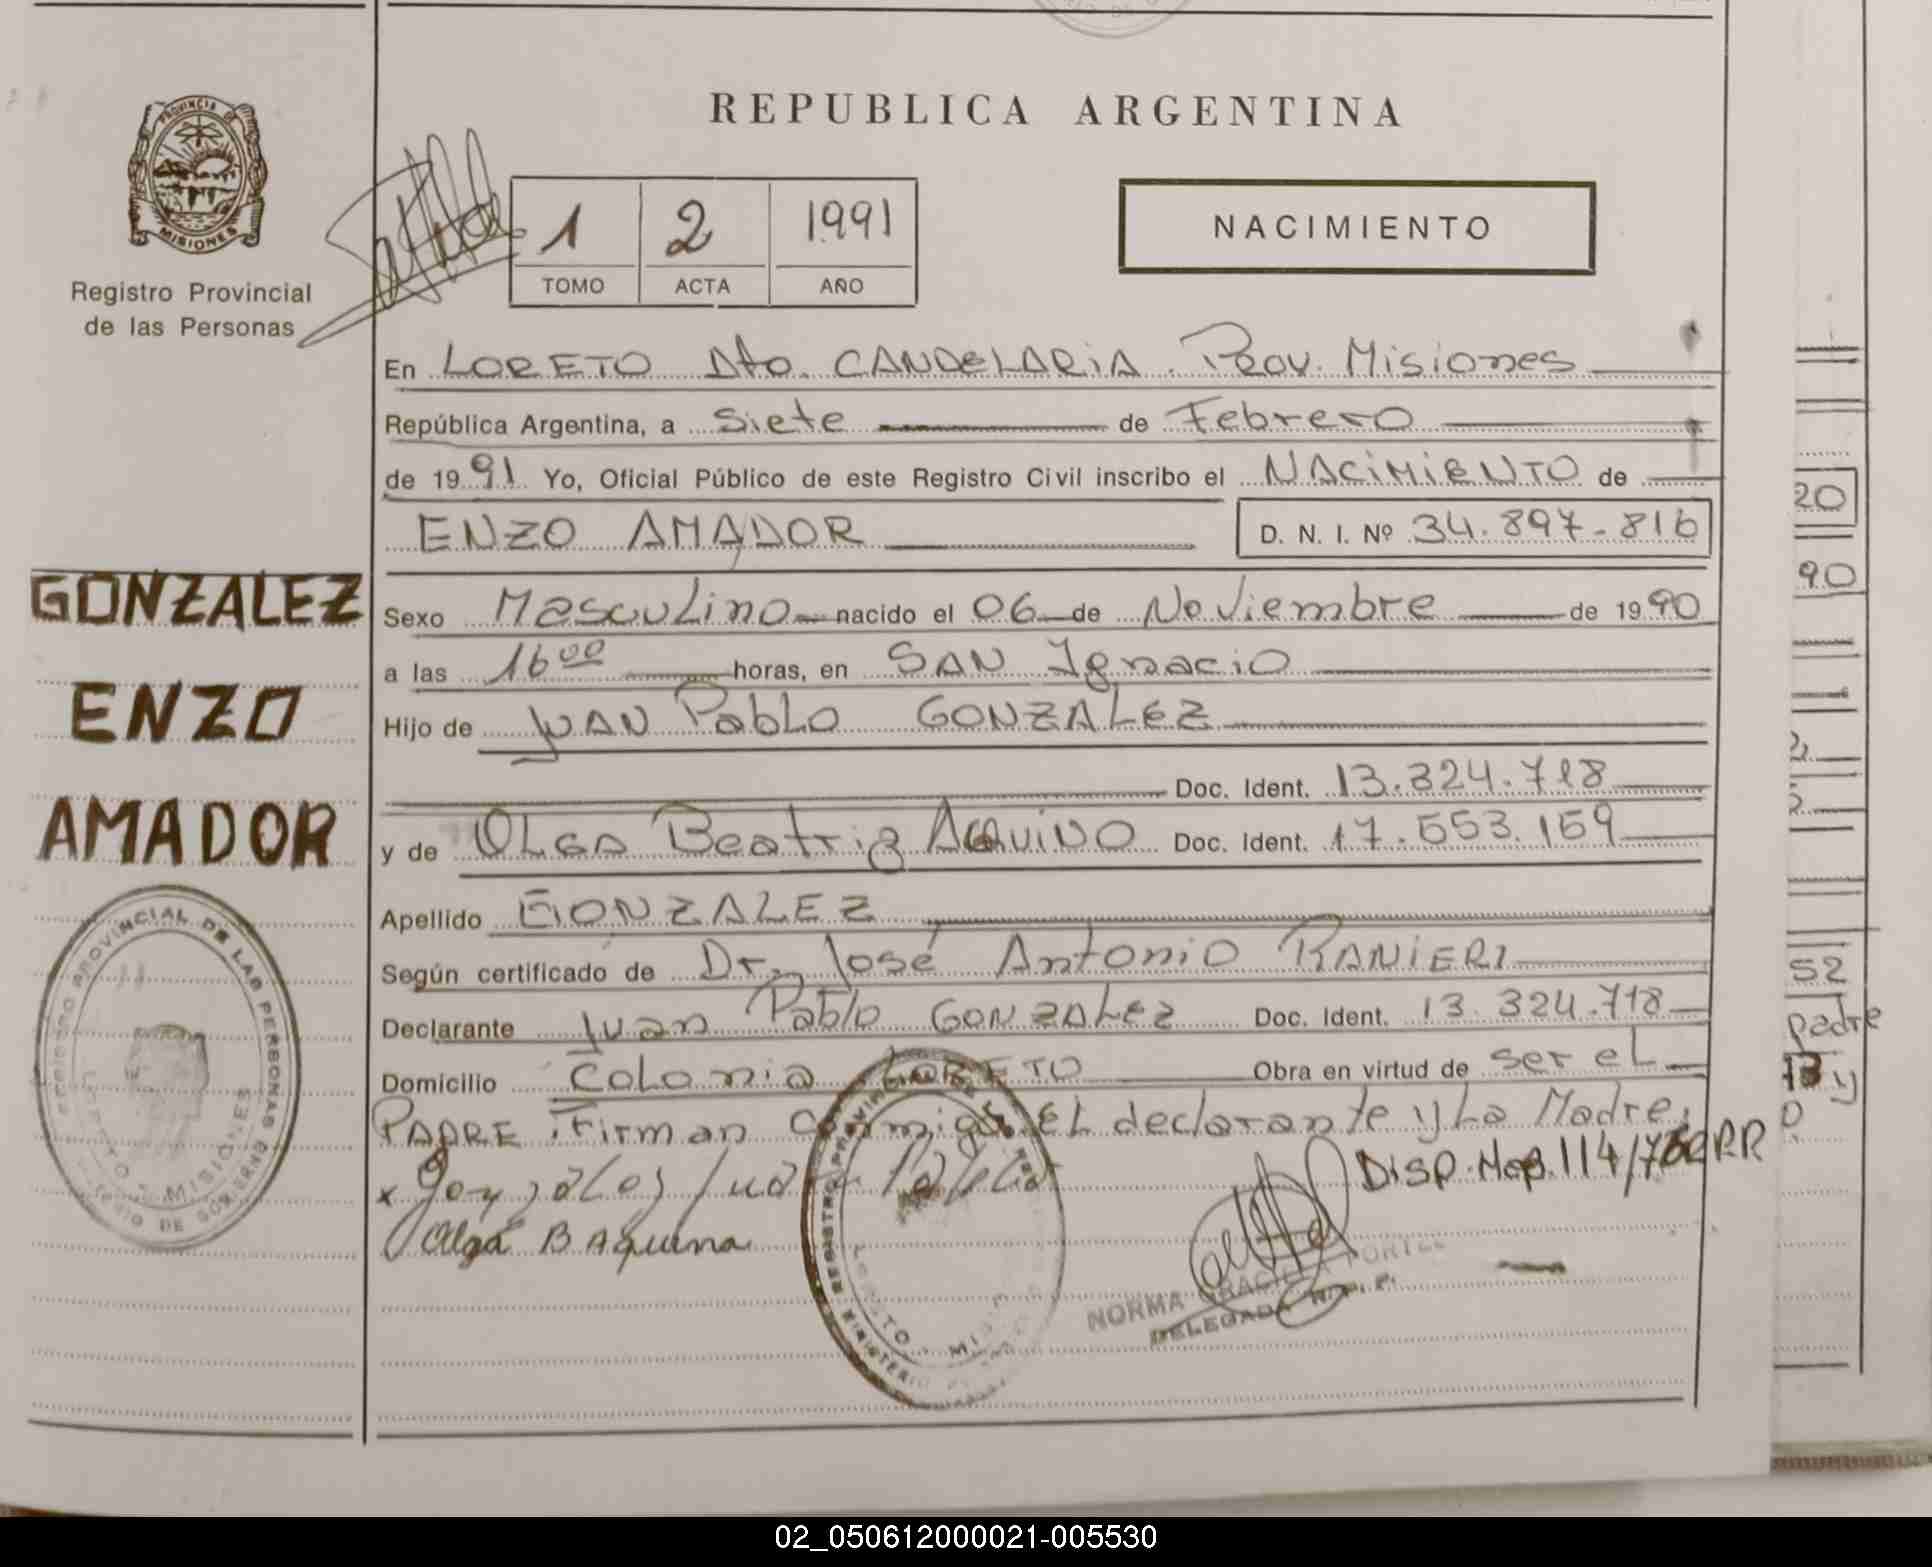 REPUBLICA ARGENTINA
PROVINCIA DE
MISIONES
Registro Provincial
de las Personas
1 2 1991
TOMO ACTA AÑO
NACIMIENTO
En LORETO Dto. CANDELARIA. Prov. Misiones
República Argentina, a Siete de Febrero
de 1991 Yo, Oficial Público de este Registro Civil inscribo el NACIMIENTO de
ENZO AMADOR D. N. I. Nº 34.897.816
GONZALEZ
ENZO
AMADOR
Sexo Masculino nacido el 06 de Noviembre de 1990
a las 16 00 horas, en SAN Ignacio
Hijo de JUAN Pablo GONZALEZ
Doc. Ident. 13.324.718
y de OLGA Beatriz AQUINO Doc. Ident. 17.553.159
Apellido GONZALEZ
Según certificado de Dr. José Antonio RANIERI
Declarante Juan Pablo GONZALEZ Doc. Ident. 13.324.718
Domicilio Colonia LORETO Obra en virtud de ser el
PADRE Firman conmigo El declarante y La Madre.
Disp. Nº 114/78 RR
x Gonzales Juan Pablo
Olga B Aquino
NORMA GRACIELA
DELEGADA R. P. P.
REGISTRO PROVINCIAL DE LAS PERSONAS
LORETO - MISIONES
MINISTERIO DE GOBIERNO
REGISTRO PROVINCIAL DE
LORETO
MINISTERIO
20
90
52
padre
y
02_050612000021-005530